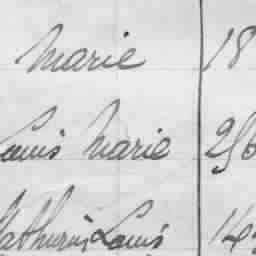 Marie 18
Louis Marie 256
Mathurin Louis 14